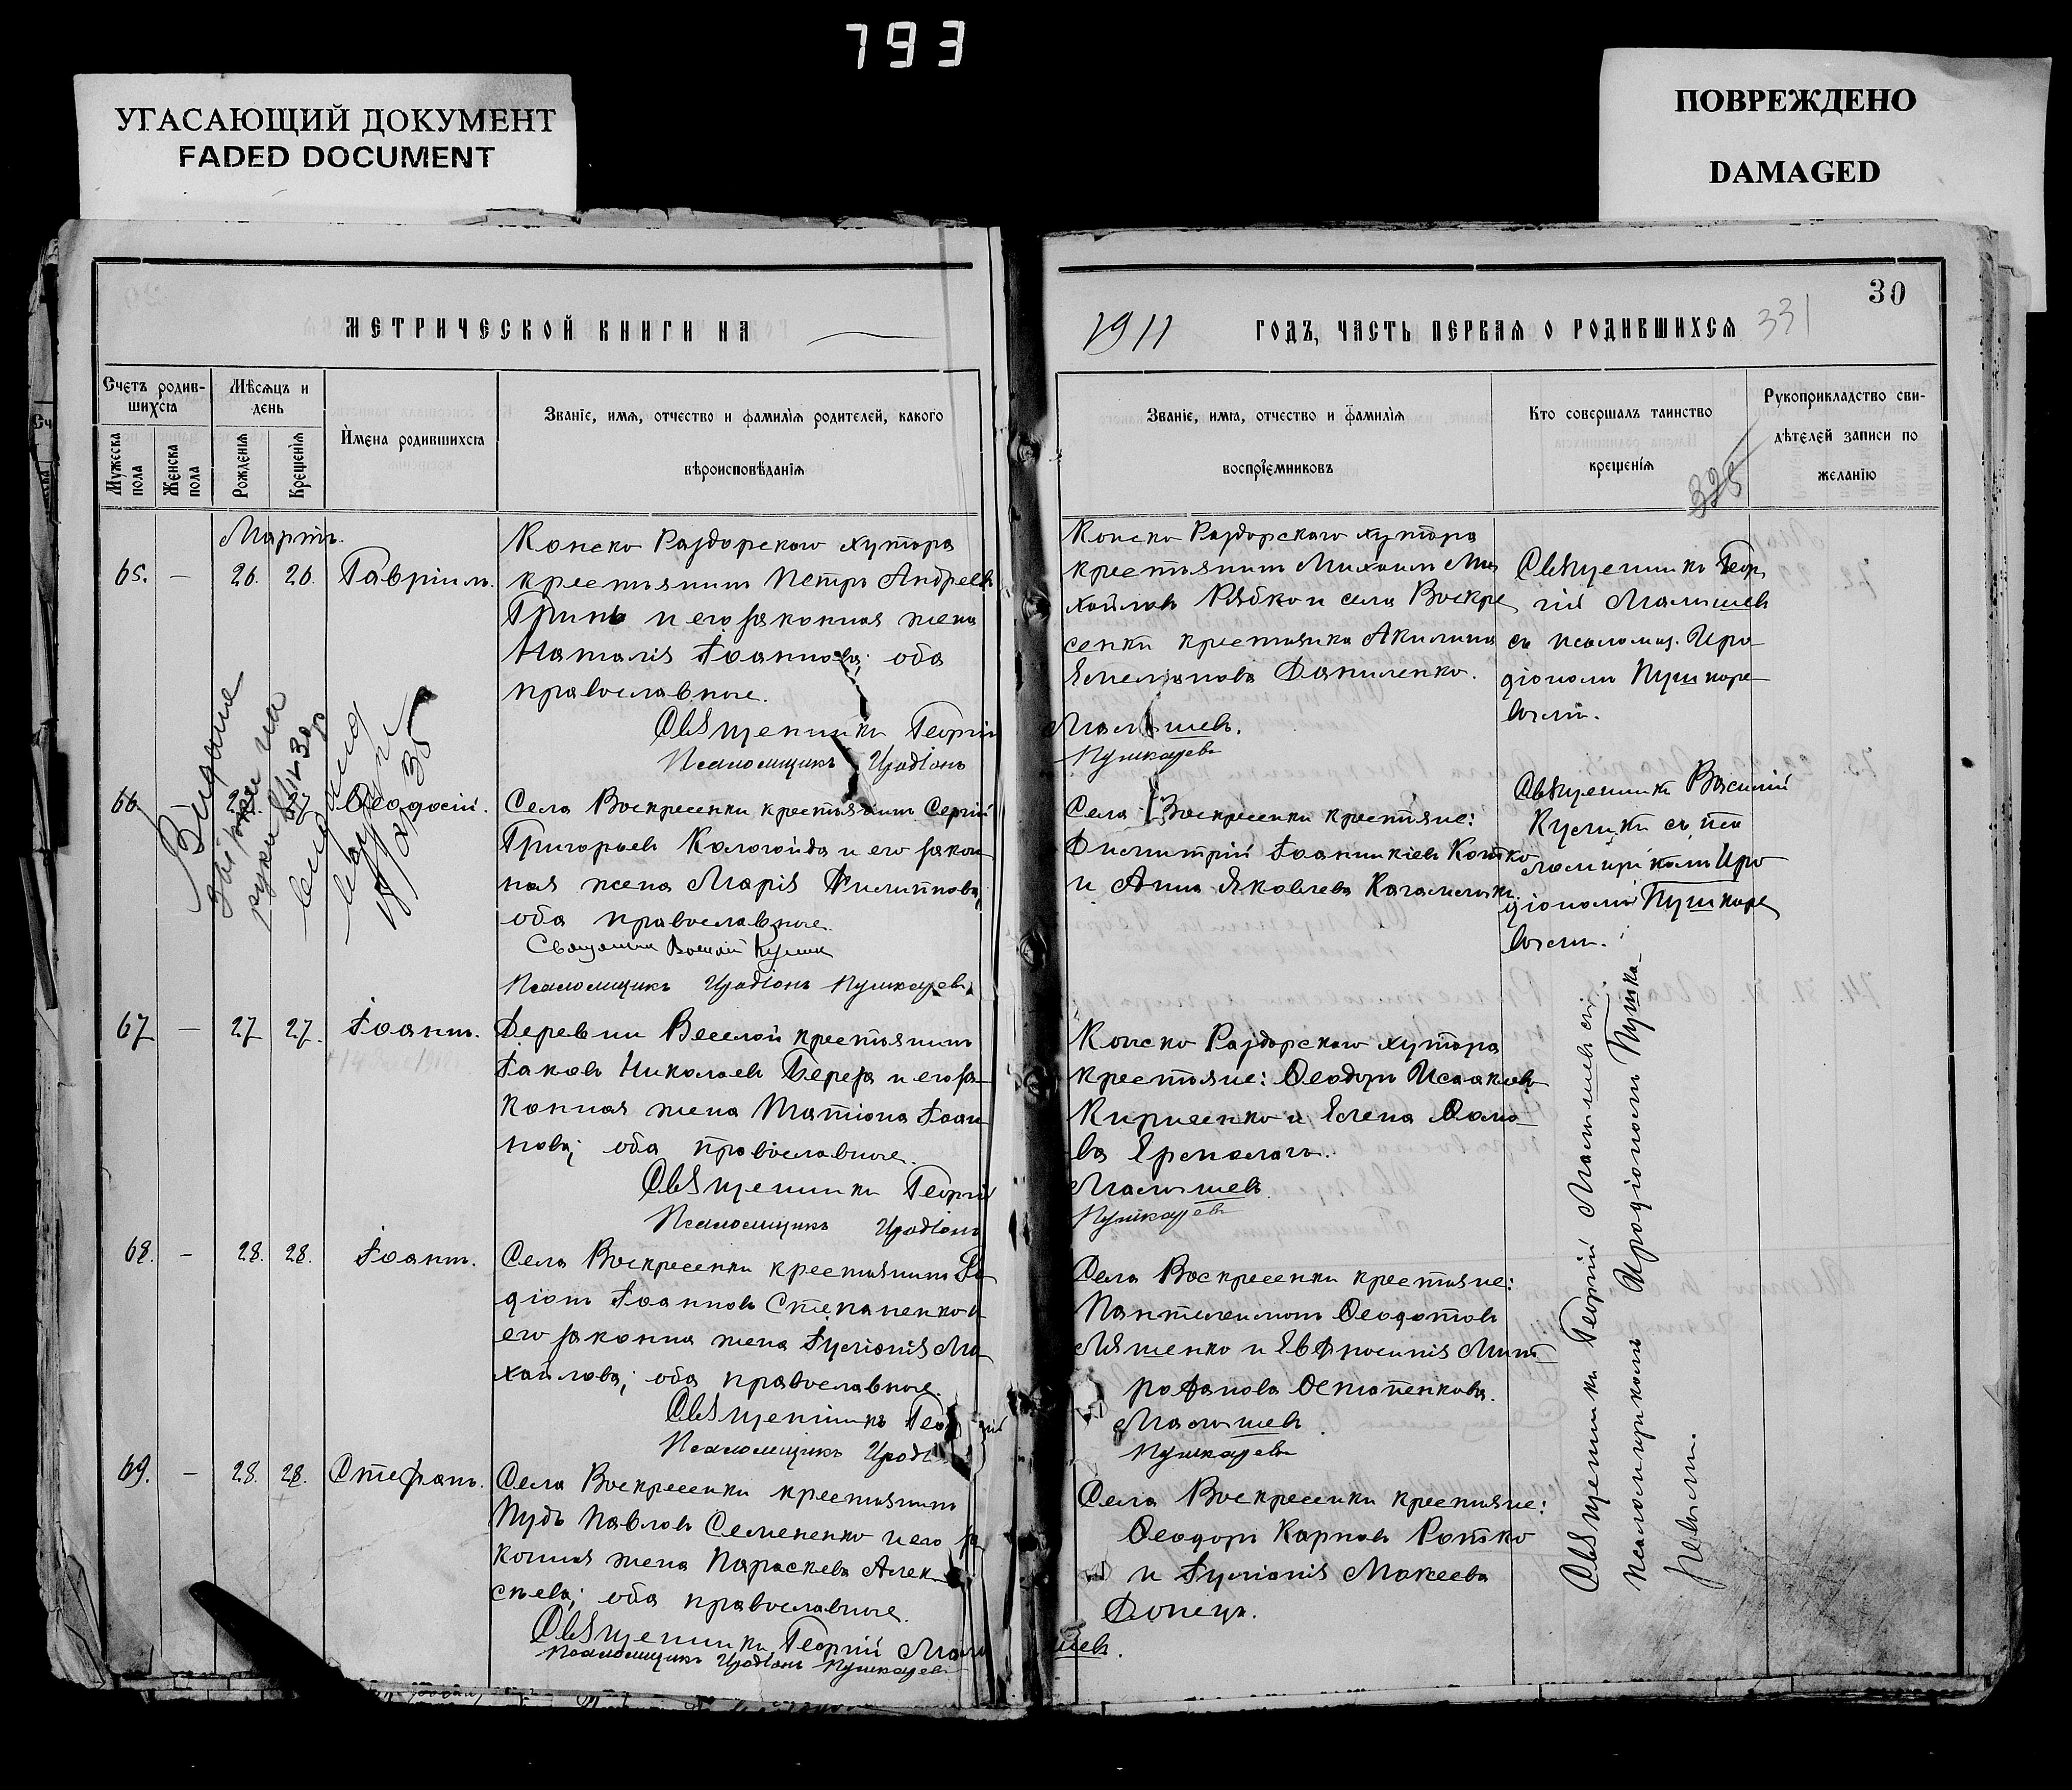 793
УГАСАЮЩИЙ ДОКУМЕНТ
FADED DOCUMENT
ПОВРЕЖДЕНО
DAMAGED
30
МЕТРИЧЕСКОЙ КНИГИ НА
1911 ГОДЪ, ЧАСТЬ ПЕРВАЯ О РОДИВШИХСЯ 331
Счетъ родив-
шихся
Мужеска пола
Женска пола
Мѣсяцъ и
день
Рожденія
Крещенія
Имена родившихся
Званіе, имя, отчество и фамилія родителей, какого
вѣроисповѣданія
Званіе, имя, отчество и фамилія
воспріемниковъ
Кто совершалъ таинство
крещенія
325
Рукоприкладство сви-
дѣтелей записи по
желанію
Мартъ.
65. — 26. 26. Гавріилъ.
Конско Раздорскаго хутора
крестьянинъ Петръ Андреевъ
Гринь и его законная жена
Наталія Іоаннова; оба
православные.
Священникъ Георгій Малышев.
Псаломщикъ Иродіонъ Пушкаревъ
Конско Раздорскаго хутора
крестьянинъ Михаилъ Ми
хайловъ Рябко и села Воскре
сенки крестьянка Акилина
Емеліанова Даниленко.
Священникъ Геор
гій Малышев
съ псаломщ. Иро
діономъ Пушкаре
вымъ.
66 Ѳеодосій.
Видана
Села Воскресенки крестьянинъ Сергій
Григорьевъ Кологойда и его закон
ная жена Марія Филиппова,
оба православные.
Священник Василий Кулик
Псаломщикъ Иродіонъ Пушкаревъ
Села Воскресенки крестьяне:
Димитрій Іоанникіевъ Котко
и Анна Яковлева
Священникъ Василий
Куликъ съ пса
ломщикомъ Иро
діономъ Пушкаре
вымъ.
67 — 27 27. Іоаннъ.
Деревни Веселой крестьянинъ
Іаковъ Николаевъ Береза и его за
конная жена Татіана Іоан
нова; оба православные.
Священникъ Георгій Малышевъ
Псаломщикъ Иродіонъ Пушкаревъ
Конско Раздорскаго хутора
крестьяне: Ѳеодоръ Исаакіевъ
Кириченко и Елена Ѳоми
ва
68. — 28. 28. Іоаннъ.
Села Воскресенки крестьянинъ Ро
діонъ Іоанновъ Степаненко и
его законна жена Іуліанія Ми
хайлова; оба православные.
Священникъ Георгій Малышевъ
Псаломщикъ Иродіонъ Пушкаревъ
Села Воскресенки крестьяне:
Пантелеимонъ Ѳеодотовъ
Ляшенко и Евфросинія Мит
рофанова Остапенкова.
69. — 28. 28. Стефанъ.
Села Воскресенки крестьянинъ
Пудъ Павловъ Семененко и его за
конная жена Параскева Алек
сѣева; оба православные.
Священникъ Георгій Малышев.
Псаломщикъ Иродіонъ Пушкаревъ
Села Воскресенки крестьяне:
Ѳеодоръ Карповъ Ротко
и Іуліанія Мокеева
Донецъ.
Священникъ Георгій Малышевъ съ
Псаломщикомъ Иродіономъ Пушка-
ревымъ.